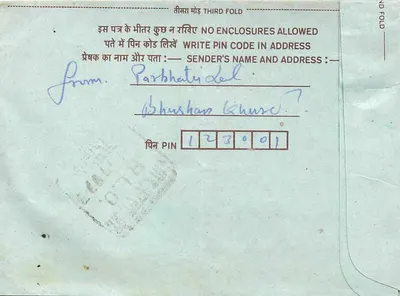 तीसरा मोड़ THIRD FOLD
इस पत्र के भीतर कुछ न रखिए NO ENCLOSURES ALLOWED
पते में पिन कोड लिखें WRITE PIN CODE IN ADDRESS
प्रेषक का नाम और पता :— SENDER'S NAME AND ADDRESS :—
from. Parbhati Lal
Bhushan Khurd
पिन PIN 123001
ND FOLD